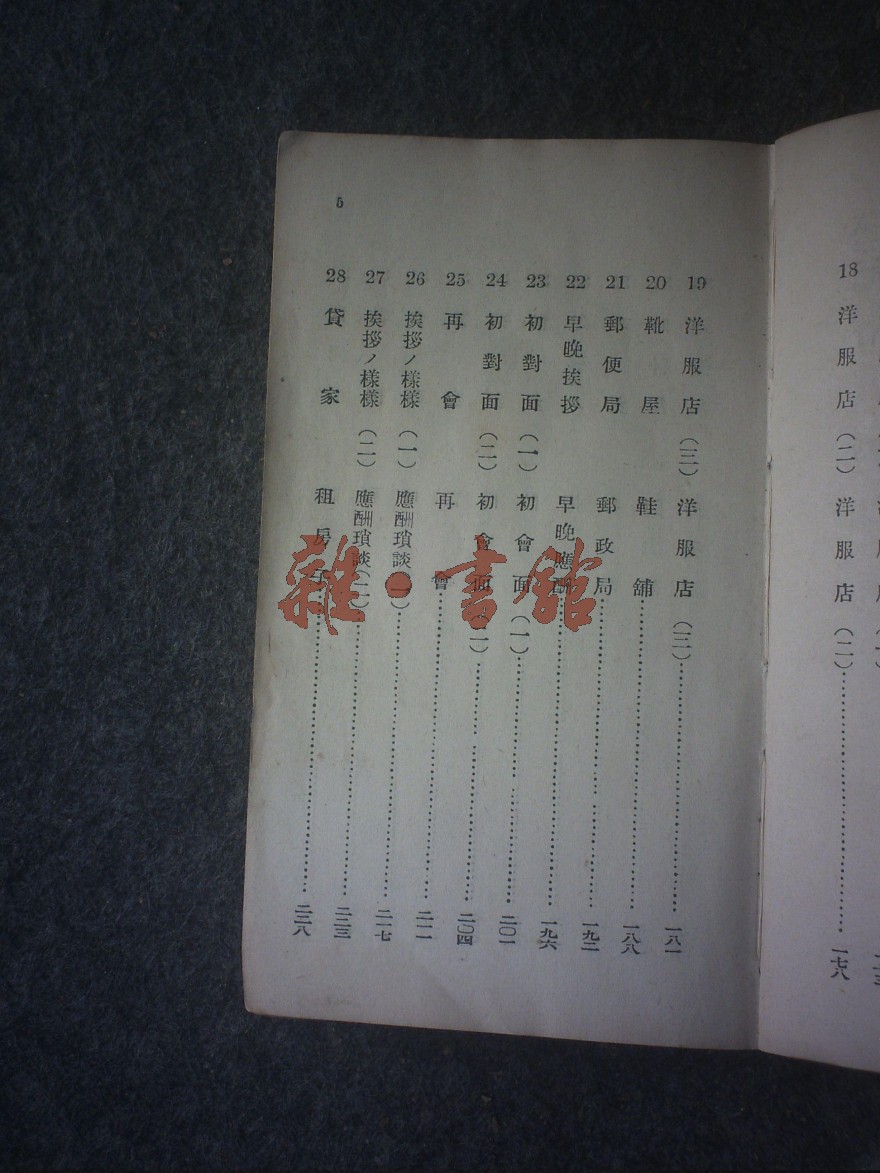 18 洋服店(二) 洋服店(二) 一七八
5
19 洋服店(三) 洋服店(三) 一八一
20 靴屋 鞋舖 一八八
21 郵便局 郵政局 一九二
22 早晩挨拶 早晩應酬 一九六
23 初對面(一) 初會面(一) 二〇一
24 初對面(二) 初會面(二) 二〇四
25 再會 再會 二一一
26 挨拶ノ樣樣(一) 應酬瑣談(一) 二一七
27 挨拶ノ樣樣(二) 應酬瑣談(二) 二二三
28 貸家 租房子 二二八
雜·書館